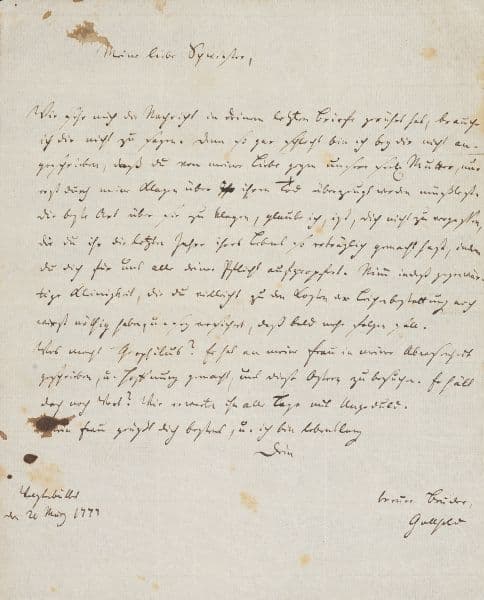 Meine liebe Schwester,
Wie sehr mich die Nachricht in deinem letzten Briefe gerührt hat, brauche
ich dir nicht zu sagen. Denn so gar schlecht bin ich bey dir nicht an-
geschrieben, daß du von meiner Liebe gegen unsere sel. Mutter, nur
erst durch meine Klagen über ihren Tod überzeugt werden müßtest.
Die beste Art über sie zu klagen, glaube ich, ist, dich nicht zu vergessen,
die du ihr die letzten Jahre ihres Lebens so erträglich gemacht hast, indem
du dich für uns alle deiner Pflicht aufgeopfert. Nimm indeß gegenwär-
tige Kleinigkeit, die du vielleicht zu den Kosten der Leichbestattung noch
wirst nöthig haben, u. sey versichert, daß bald mehr folgen soll.
Was macht Theophilus? Er hat an meine Frau in meiner Abwesenheit
geschrieben, u. Hoffnung gemacht, uns diese Ostern zu besuchen. Er hält
doch noch Wort? Wir erwarten ihn alle Tage mit Ungeduld.
Frau grüßt dich bestens, u. ich bin lebenslang
Dein
treuer Bruder,
Gotthold
Wolfenbüttel
den 20 März 1777